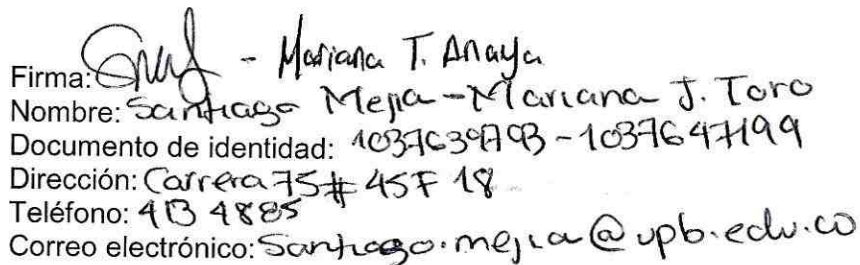 Firma: - Mariana T. Anaya
Nombre: Santiago Mejia - Mariana J. Toro
Documento de identidad: 1037639793 - 1037647199
Dirección: Carrera 75 # 45F 18
Teléfono: 413 4885
Correo electrónico: Santiago.mejia@upb.edu.co